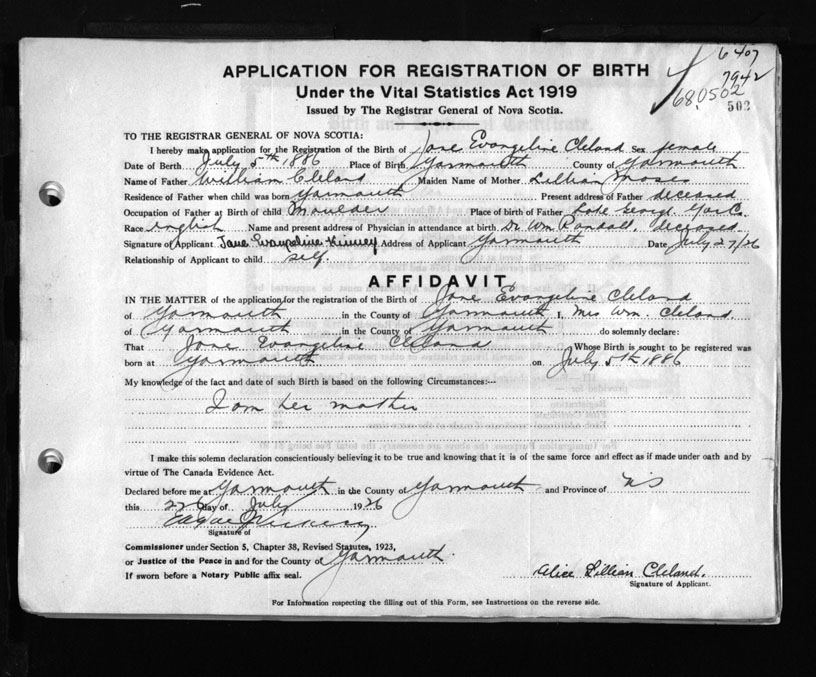 6407
7942
680502
502
APPLICATION FOR REGISTRATION OF BIRTH
Under the Vital Statistics Act 1919
Issued by The Registrar General of Nova Scotia.
TO THE REGISTRAR GENERAL OF NOVA SCOTIA:
I hereby make application for the Registration of the Birth of Jane Evangeline Cleland Sex female
Date of Berth July 5th 1886 Place of Birth Yarmouth County of Yarmouth
Name of Father William Cleland Maiden Name of Mother Lillian
Residence of Father when child was born Yarmouth Present address of Father deceased
Occupation of Father at Birth of child Moulder Place of birth of Father
Race English Name and present address of Physician in attendance at birth Dr Wm Randall, deceased
Signature of Applicant Jane Evangeline Kinney Address of Applicant Yarmouth Date July 27/26
Relationship of Applicant to child self.
AFFIDAVIT
IN THE MATTER of the application for the registration of the Birth of Jane Evangeline Cleland
of Yarmouth in the County of Yarmouth I, Mrs Wm. Cleland.
of Yarmouth in the County of Yarmouth do solemnly declare:
That Jane Evangeline Cleland Whose Birth is sought to be registered was
born at Yarmouth on July 5th 1886
My knowledge of the fact and date of such Birth is based on the following Circumstances:--
I am her mother
I make this solemn declaration conscientiously believing it to be true and knowing that it is of the same force and effect as if made under oath and by
virtue of The Canada Evidence Act.
Declared before me at Yarmouth in the County of Yarmouth and Province of NS
this day of July 1926
Signature of
Commissioner under Section 5, Chapter 38, Revised Statutes, 1923,
or Justice of the Peace in and for the County of Yarmouth.
If sworn before a Notary Public affix seal.
Alice Lillian Cleland.
Signature of Applicant.
For Information respecting the filling out of this Form, see Instructions on the reverse side.